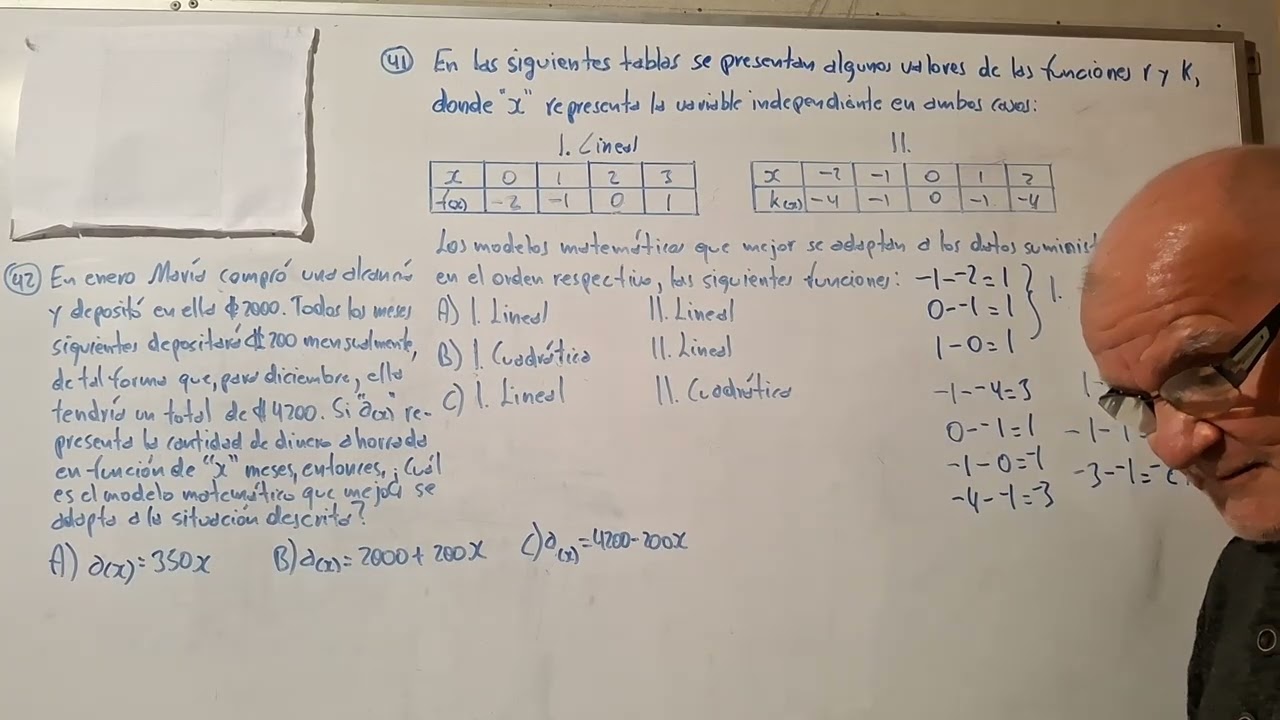 41 En las siguientes tablas se presentan algunos valores de las funciones r y k,
donde "x" representa la variable independiente en ambos casos:
I. Lineal
x 0 1 2 3
r(x) -2 -1 0 1
II.
x -2 -1 0 1 2
k(x) -4 -1 0 -1 -4
Los modelos matemáticos que mejor se adaptan a los datos
en el orden respectivo, las siguientes funciones:
A) I. Lineal II. Lineal
B) I. Cuadrática II. Lineal
C) I. Lineal II. Cuadrática
-1--2=1
0--1=1
1-0=1
I.
-1--4=3
0--1=1
-1-0=-1
-4--1=-3
42 En enero María compró una alcancía
y depositó en ella ₡2000. Todos los meses
siguientes depositará ₡200 mensualmente,
de tal forma que, para diciembre, ella
tendría un total de ₡4200. Si "a(x)" re-
presenta la cantidad de dinero ahorrado
en función de "x" meses, entonces, ¿Cuál
es el modelo matemático que mejor se
adapta a la situación descrita?
A) a(x)=350x B) a(x)=2000+200x C) a(x)=4200-200x